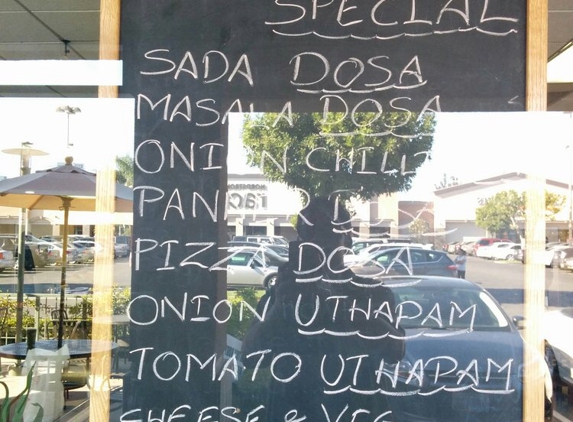 SPECIAL
SADA DOSA
MASALA DOSA
ONION CHILLI
PANEER DOSA
PIZZA DOSA
ONION UTHAPAM
TOMATO UTHAPAM
CHEESE & VEG